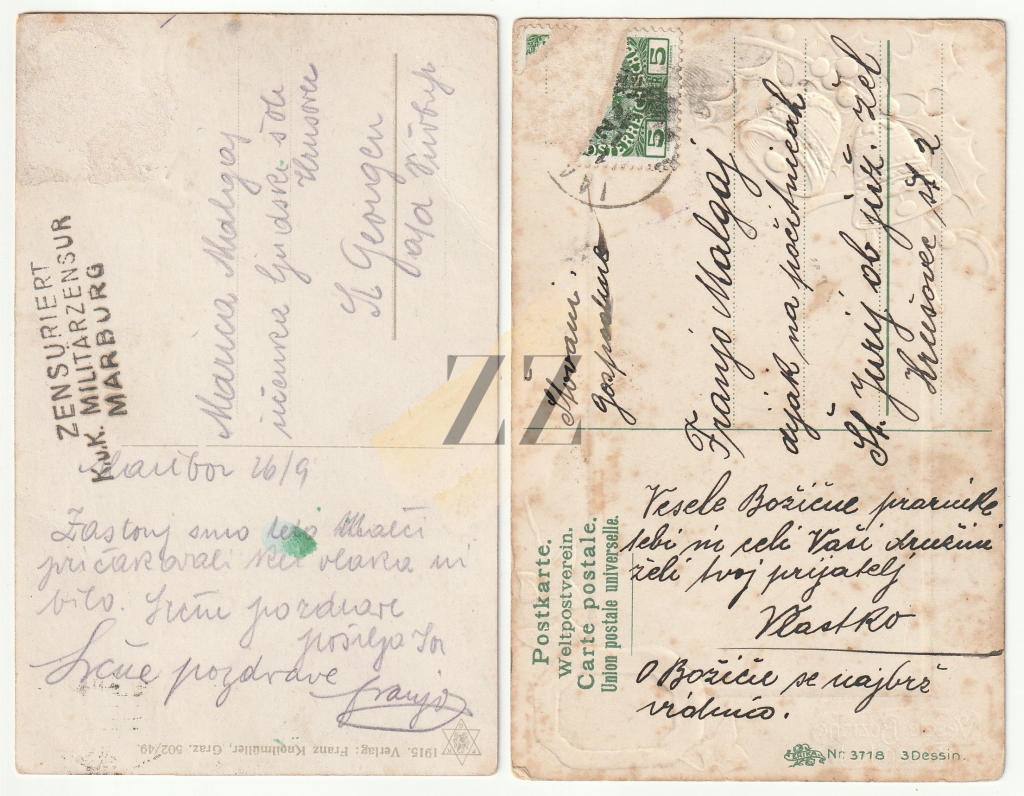 ZENSURIERT
K.u.K. MILITÄRZENSUR
MARBURG
Marica Malgaj
učenka ljudske šole
Hrusovec
St Georgen
Maribor 26/9
Zastonj smo
pričakovali ker vlaka ni
bilo. Srčne pozdrave
pošilja
Srčne pozdrave
Franjo
1915. Verlag: Franz Knollmüller, Graz. 502/49.
ZZ
5
5
Slovani
Gospodično
Franjo Malgaj
dijak na počitnicah
Št. Jurij ob juž. žel
Hrušovec št 2
Postkarte.
Weltpostverein.
Carte postale.
Union postale universelle.
Vesele Božične praznike
tebi in celi Vaši družini
želi tvoj prijatelj
Vlastko
O Božiču se najbrž
vidimo.
Nr. 3718 3 Dessin.